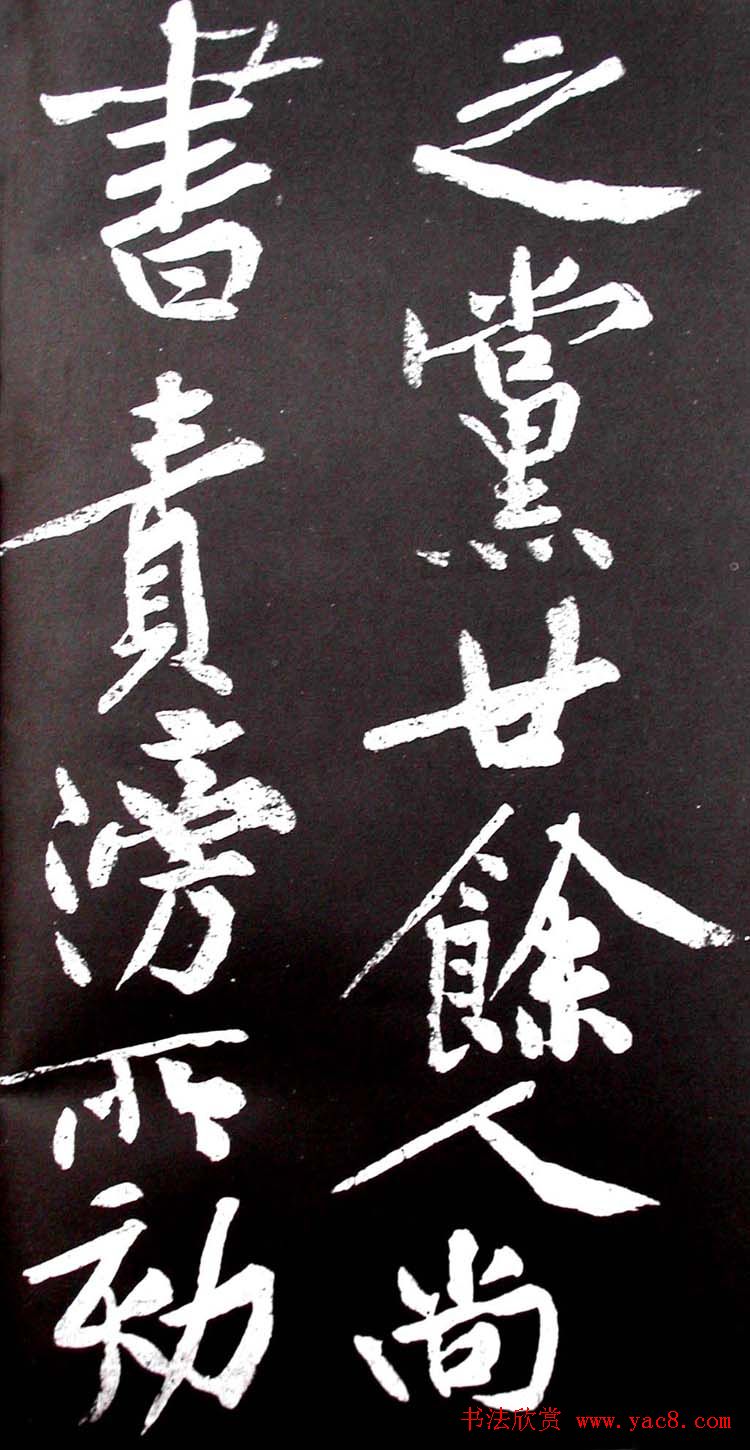 之黨廿餘人尚
書責滂所劾
书法欣赏 www.yac8.com